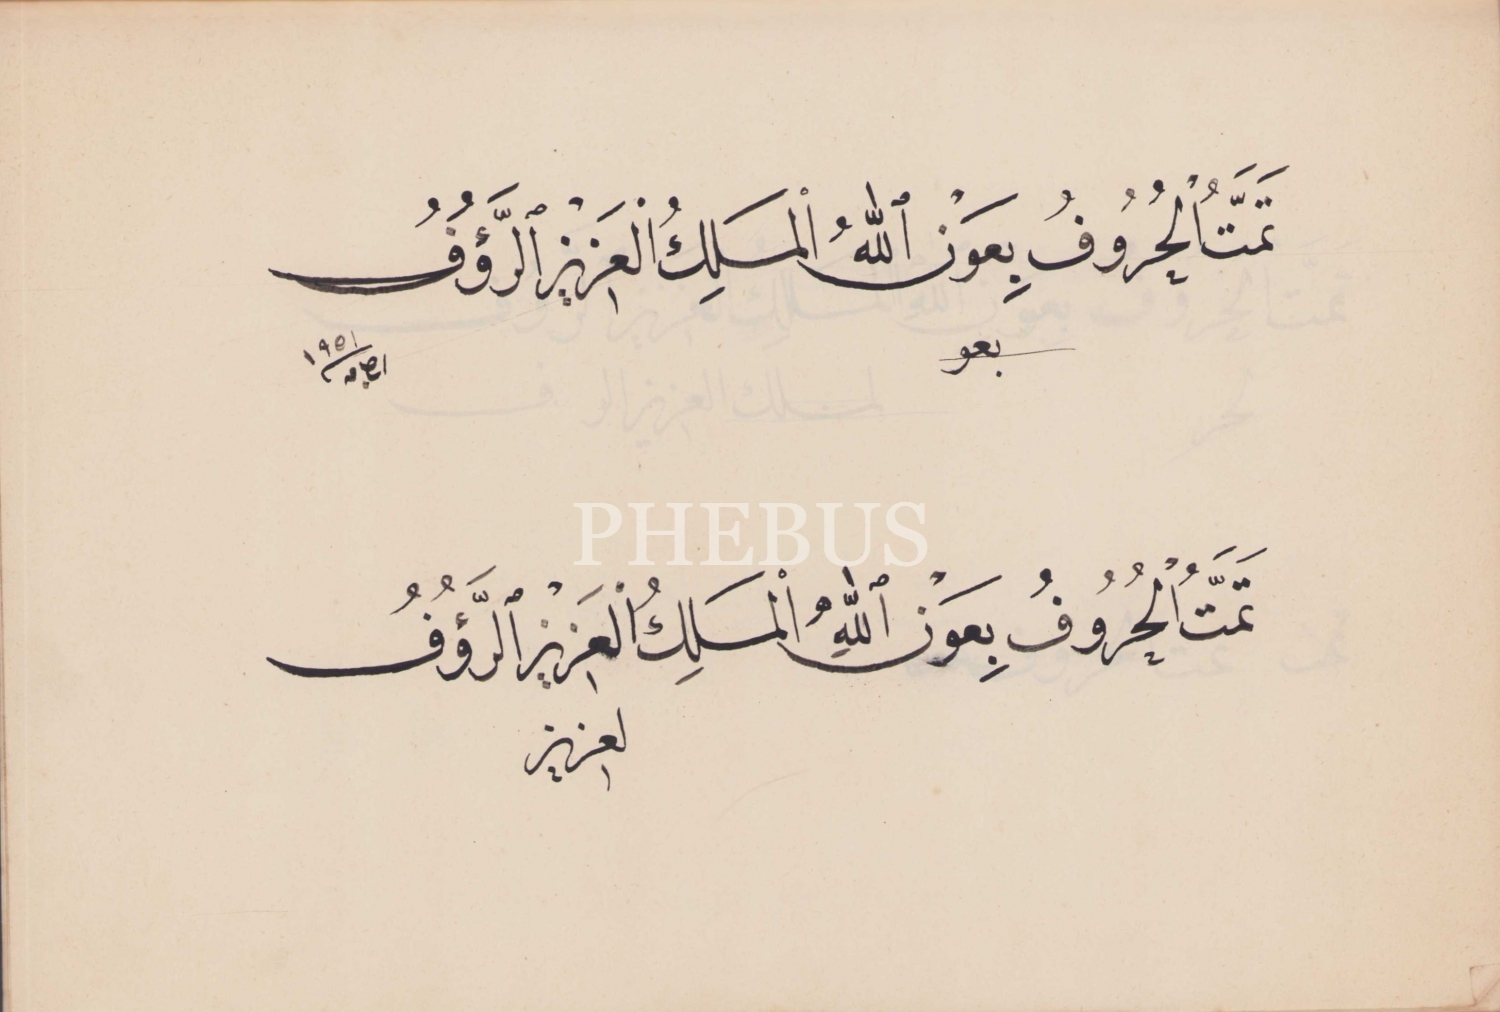 تَمَّتَ الْحُرُوفُ بِعَوْنِ ٱللهُ الْمَلِكُ الْعَزِيزِ ٱلرَّؤُفُ
١٩٥١
بعو
PHEBUS
تَمَّتَ الْحُرُوفُ بِعَوْنِ ٱللهِ الْمَلِكُ الْعَزِيزِ ٱلرَّؤُفُ
لعزيز